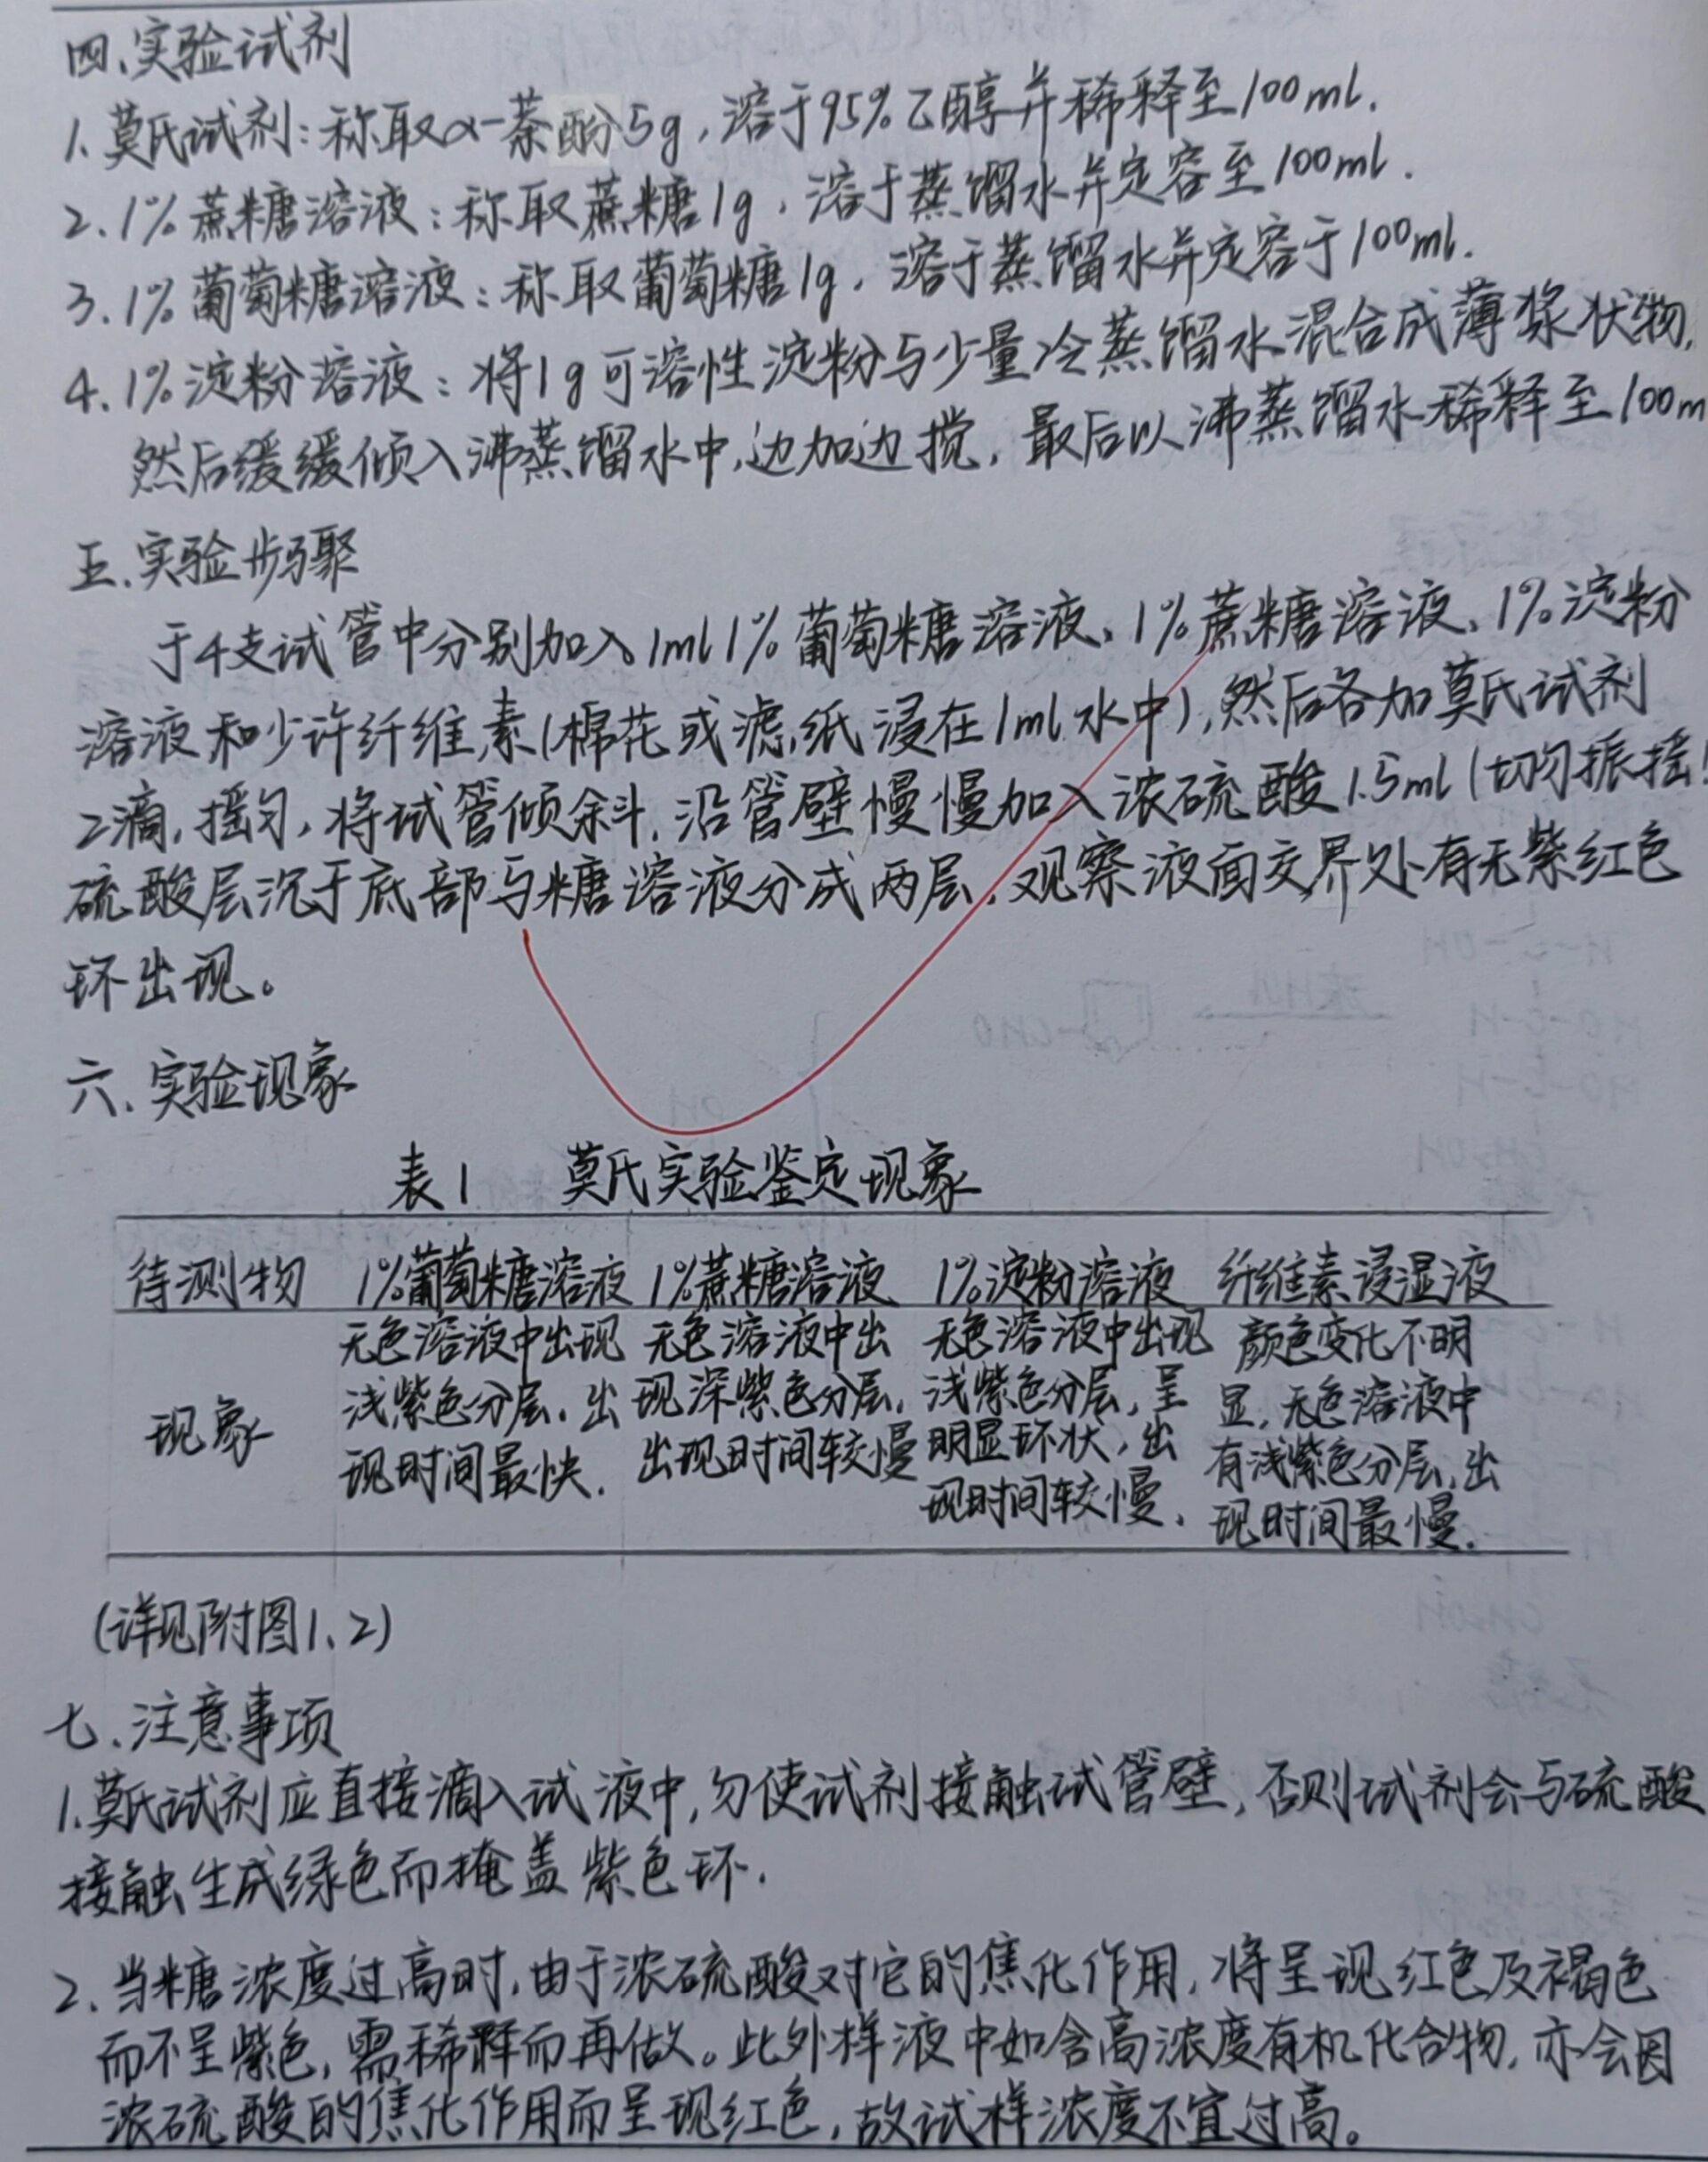 四、实验试剂
1.莫氏试剂:称取α-萘酚5g,溶于95%乙醇并稀释至100ml.
2.1%蔗糖溶液:称取蔗糖1g,溶于蒸馏水并定容至100ml.
3.1%葡萄糖溶液:称取葡萄糖1g,溶于蒸馏水并定容于100ml.
4.1%淀粉溶液:将1g可溶性淀粉与少量冷蒸馏水混合成薄浆状物,
然后缓缓倾入沸蒸馏水中,边加边搅,最后以沸蒸馏水稀释至100m
五.实验步骤
于4支试管中分别加入1ml1%葡萄糖溶液、1%蔗糖溶液、1%淀粉
溶液和少许纤维素(棉花或滤纸浸在1ml水中),然后各加莫氏试剂
2滴,摇匀,将试管倾斜,沿管壁慢慢加入浓硫酸1.5ml(切勿振摇!
硫酸层沉于底部与糖溶液分成两层,观察液面交界处有无紫红色
环出现。
六、实验现象
表1 莫氏实验鉴定现象
待测物 1%葡萄糖溶液 1%蔗糖溶液 1%淀粉溶液 纤维素浸湿液
现象
无色溶液中出现
浅紫色分层,出
现时间最快.
无色溶液中出
现深紫色分层,
出现时间较慢
无色溶液中出现
浅紫色分层,呈
明显环状,出
现时间较慢.
颜色变化不明
显,无色溶液中
有浅紫色分层,出
现时间最慢.
(详见附图1、2)
七、注意事项
1.莫氏试剂应直接滴入试液中,勿使试剂接触试管壁,否则试剂会与硫酸
接触生成绿色而掩盖紫色环.
2.当糖浓度过高时,由于浓硫酸对它的焦化作用,将呈现红色及褐色
而不呈紫色,需稀释而再做。此外样液中如含高浓度有机化合物,亦会因
浓硫酸的焦化作用而呈现红色,故试样浓度不宜过高。